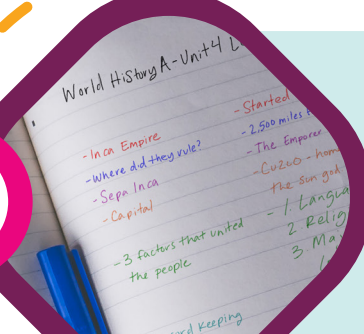 World History A - Unit 4 L
- Inca Empire
- Where did they rule?
- Sepa Inca
- Capital
- 3 factors that united
the people
Keeping
- Started
- 2,500 miles
- The Emporer
- Cuzco - hom
the sun god
- 1. Langua
2 Relig
3 Ma